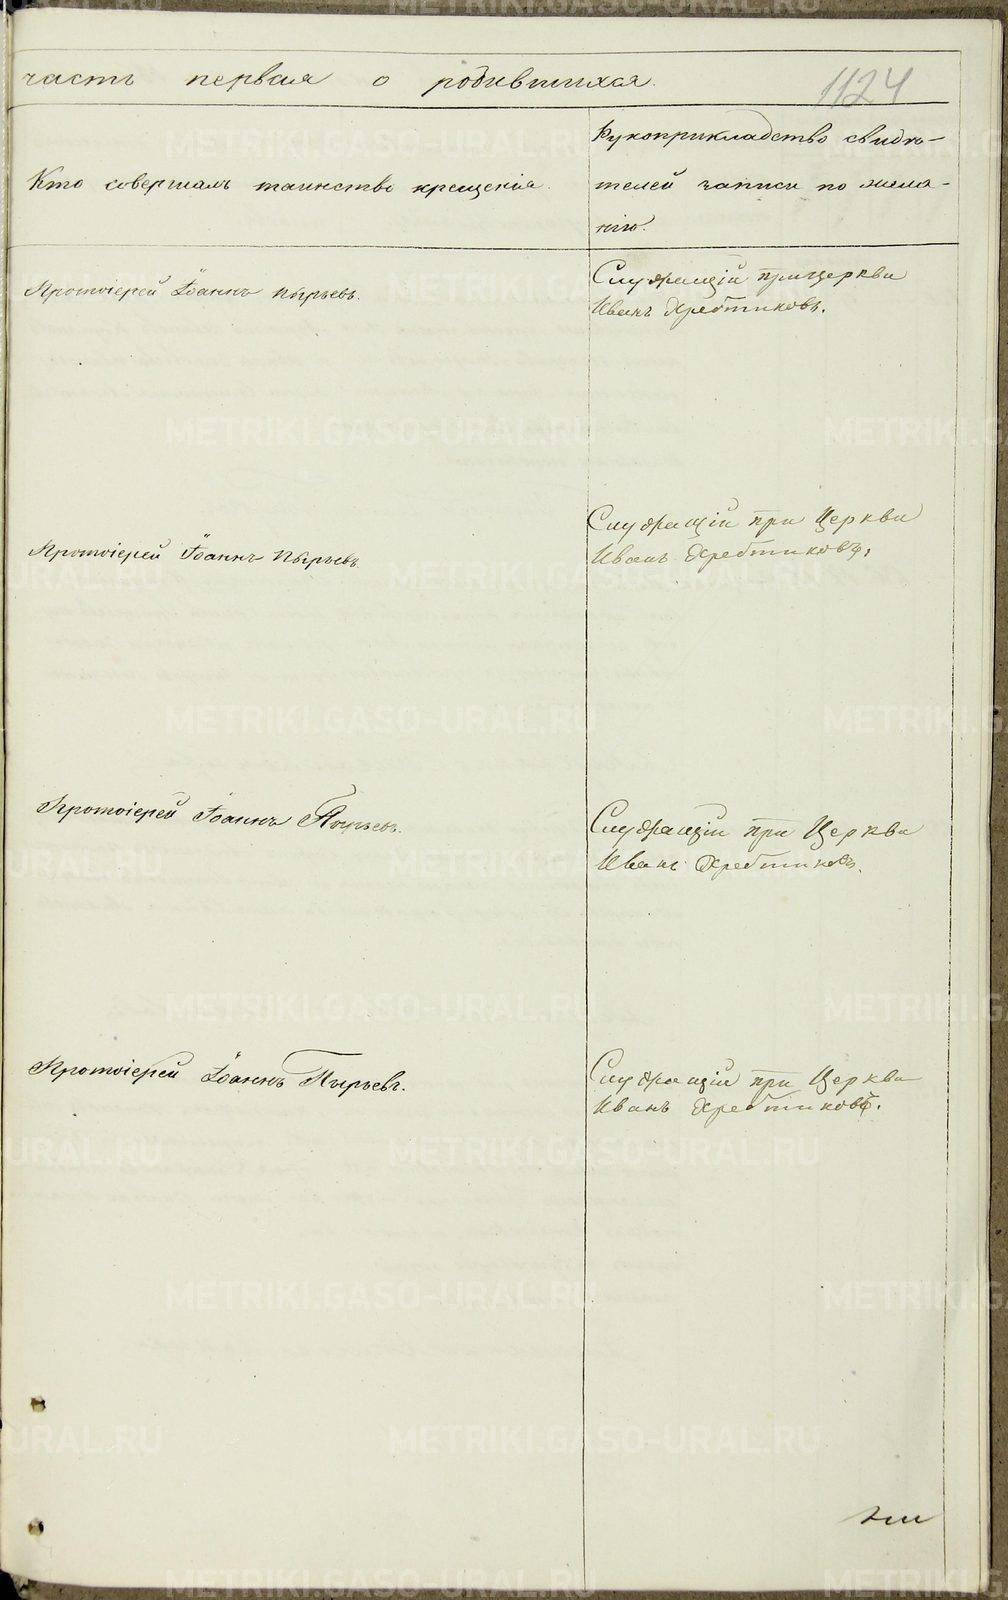 часть первая о родившихся.
1124
Кто совершалъ таинство крещенія.
Рукоприкладство свидѣ-
телей записи по жела-
нію.
Протоіерей Іоаннъ Пырьевъ.
Служащій при церкви
Иванъ Хребтиковъ.
Протоіерей Іоаннъ Пырьевъ
Служащій при Церкви
Иванъ Хребтиковъ.
Протоіерей Іоаннъ Пырьевъ.
Служащій при Церкви
Иванъ Хребтиковъ.
Протоіерей Іоаннъ Пырьевъ.
Служащій при Церкви
Иванъ Хребтиковъ.
METRIKI.GASO-URAL.RU